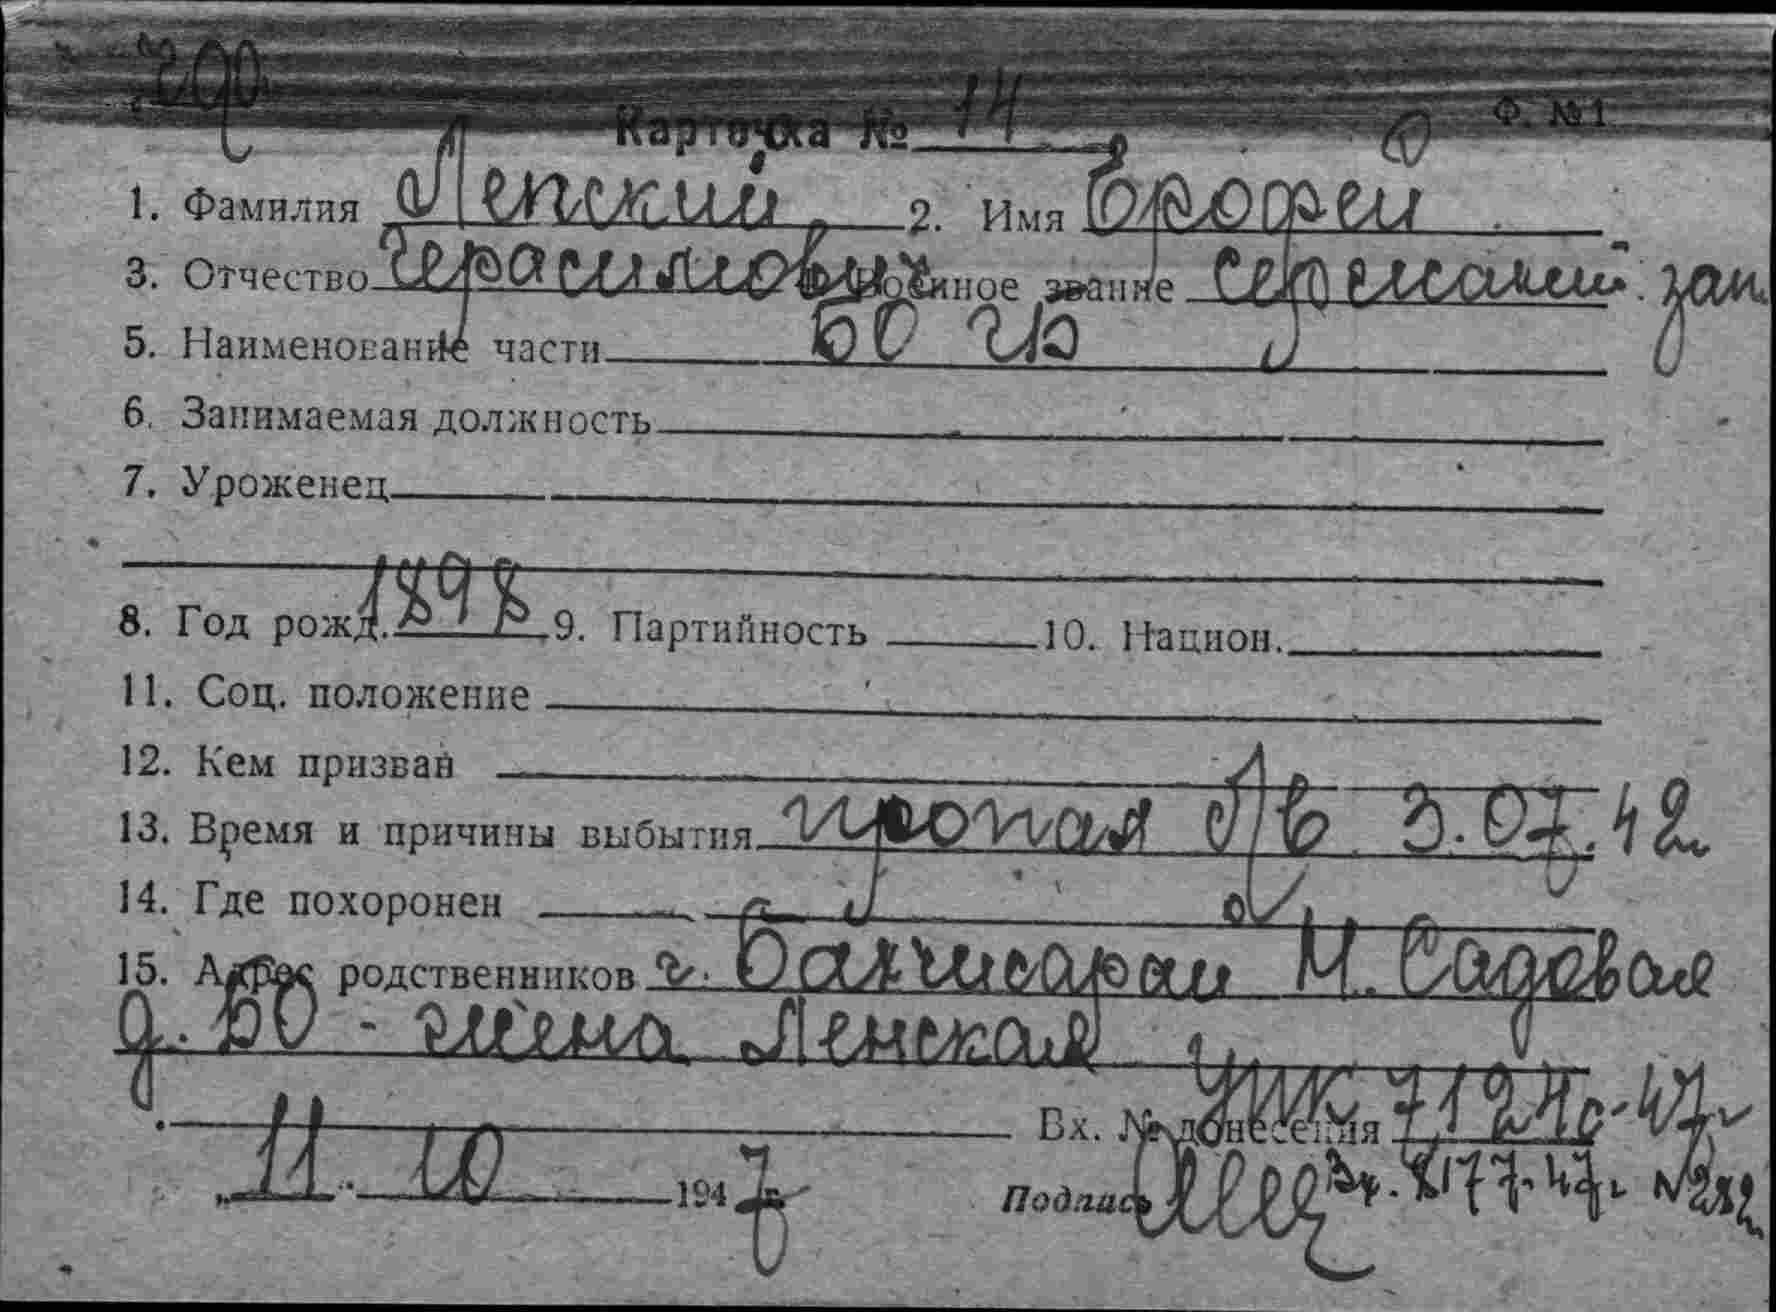 Карточка № 14 Ф. №1
1. Фамилия Ленский 2. Имя Ерофей
3. Отчество Герасимович Военное звание сержант зап.
5. Наименование части 50
6. Занимаемая должность
7. Уроженец
8. Год рожд. 1898 9. Партийность 10. Национ.
11. Соц. положение
12. Кем призван
13. Время и причины выбытия пропал 3.07.42
14. Где похоронен
15. Адрес родственников г. Бахчисарай М. Садовая
д. 50 - жена Ленская
Вх. № донесения 7124с-47г
„11. 10 1947 Подпись Вх. 8177-47г